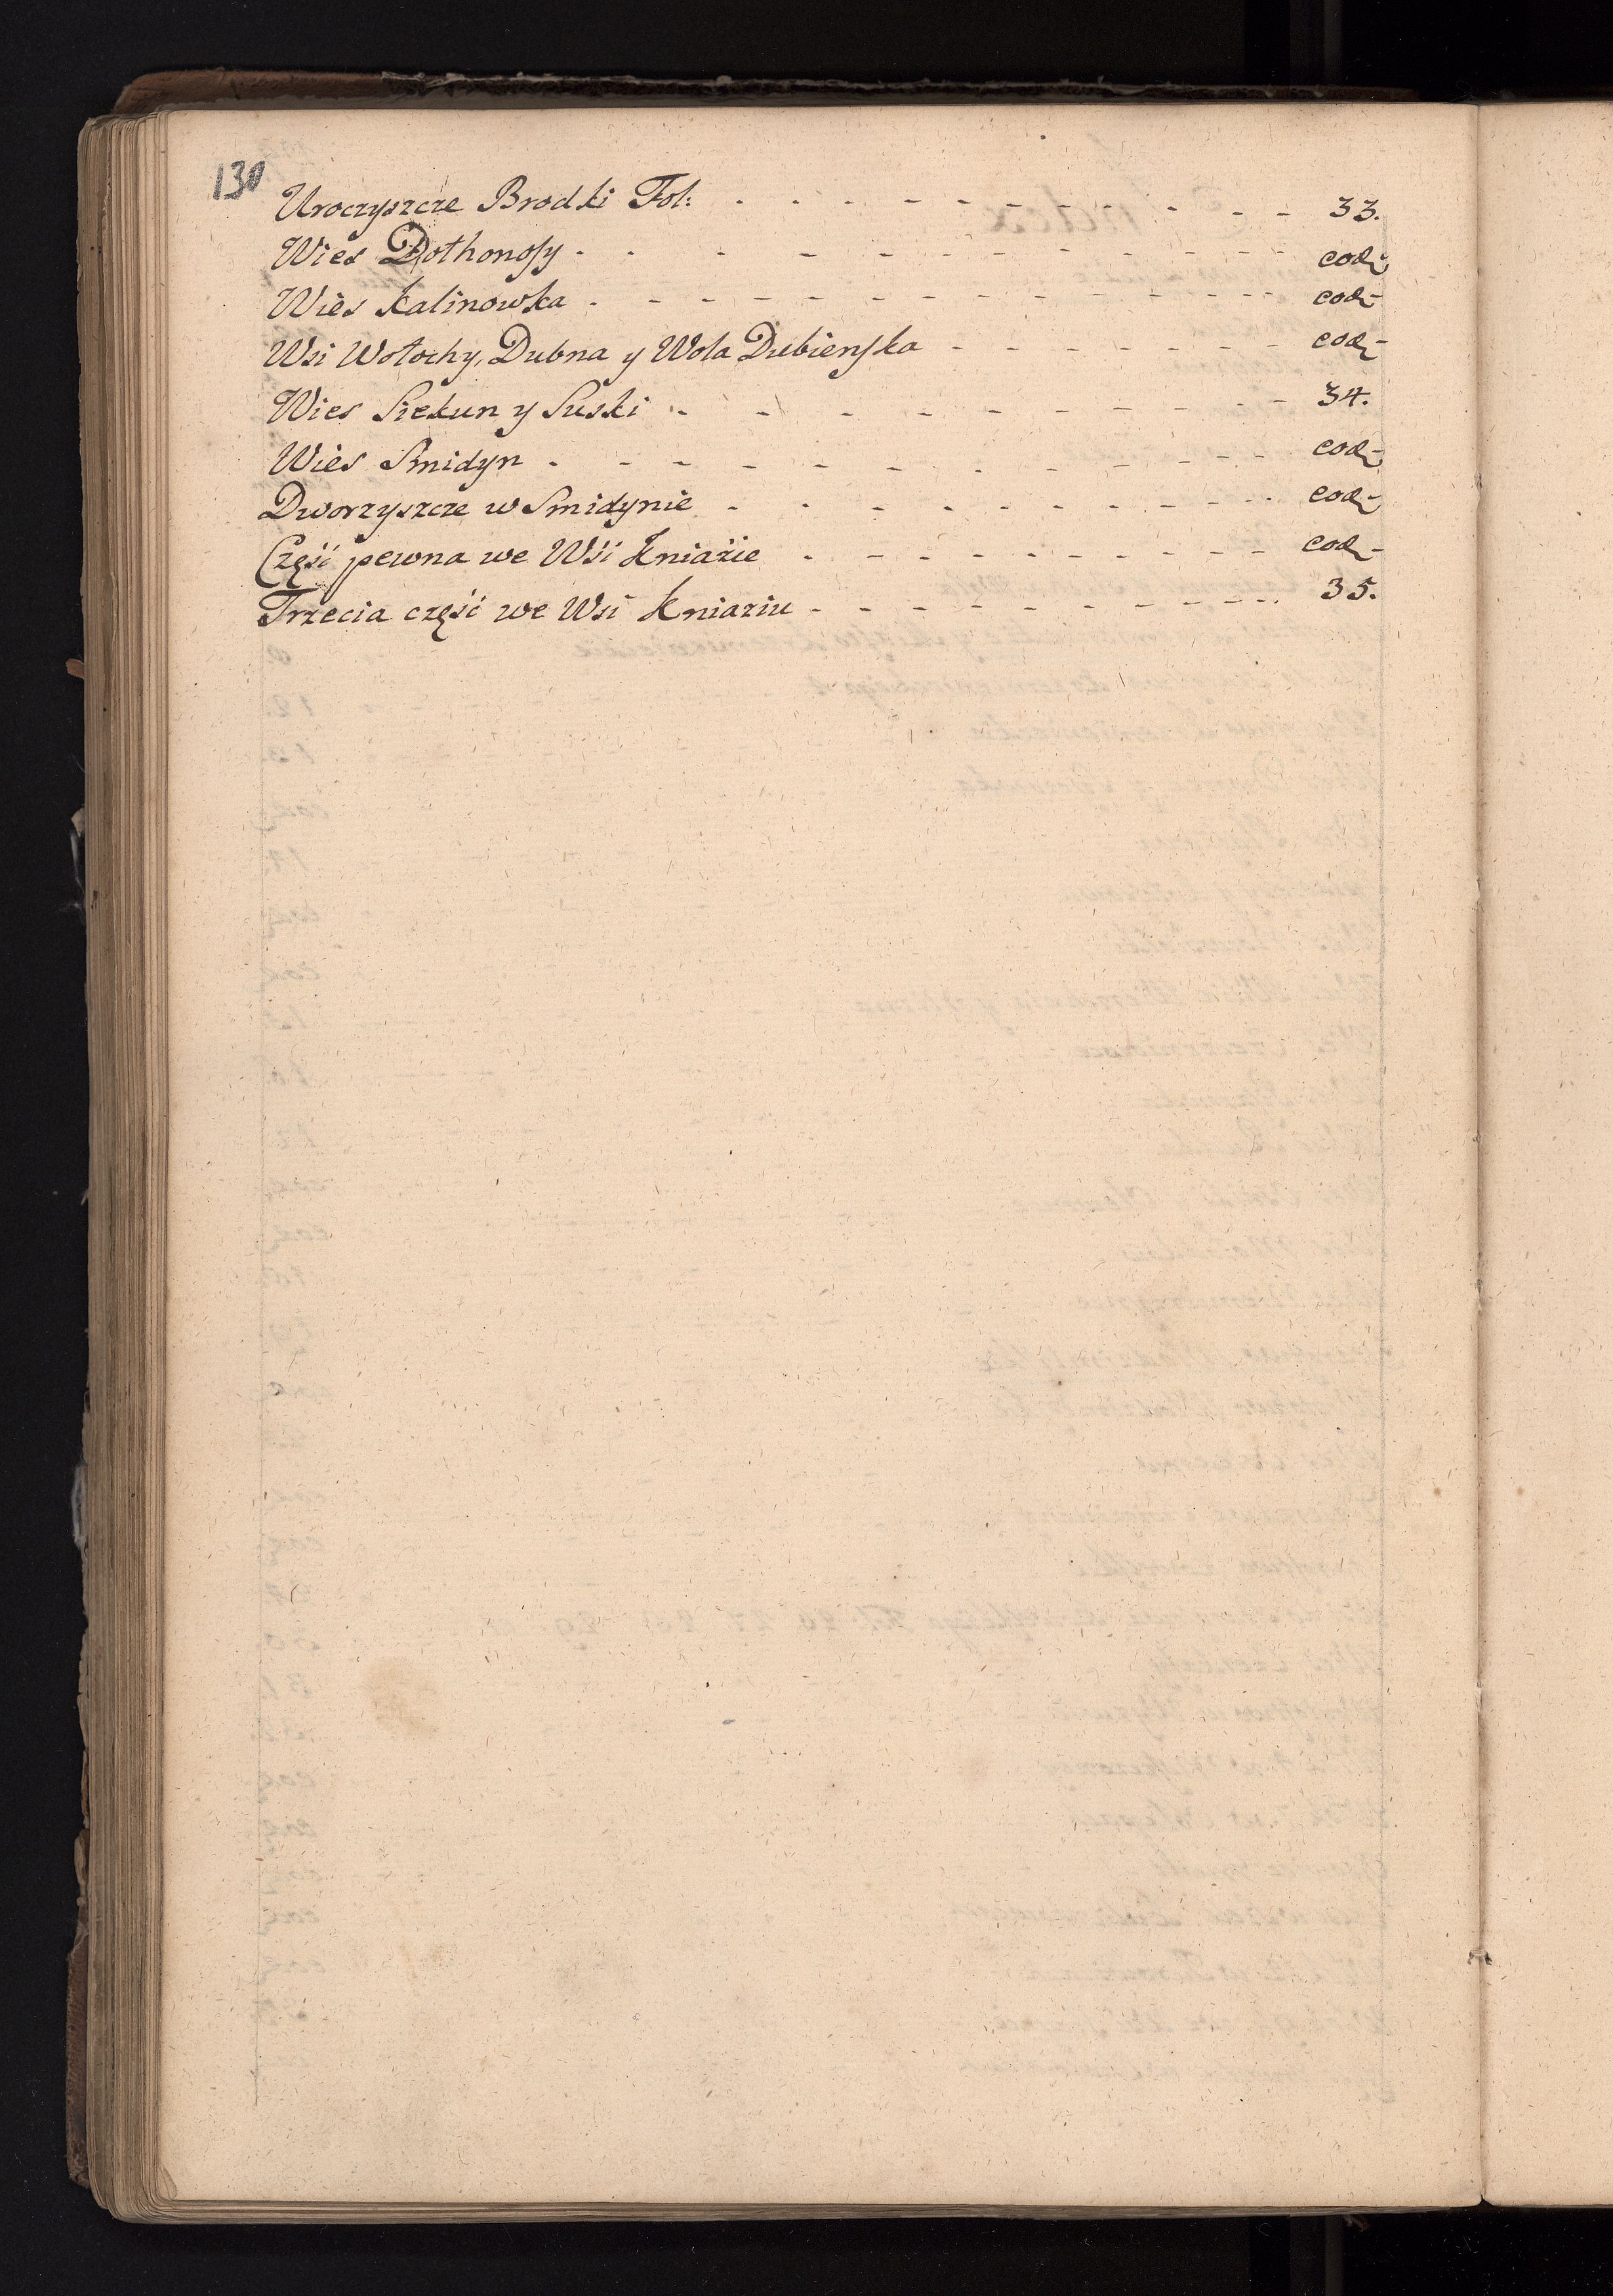 130
Uroczyszcze Brodki Fol: - - - - - - - - - - 33.
Wies Dothonosy - - - - - - - - - - eod:
Wies Kalinowka - - - - - - - - - - eod:
Wsi Wołochy, Dubna y Wola Dubienska - - - - - - - eod:
Wies Siekun y Suski - - - - - - - - - - 34.
Wies Smidyn - - - - - - - - - - eod:
Dworzyszcze w Smidynie - - - - - - - - - - eod:
Część pewna we Wśi Kniażie - - - - - - - - - - eod:
Trzecia część we Wsi Kniaziu - - - - - - - - - - 35.